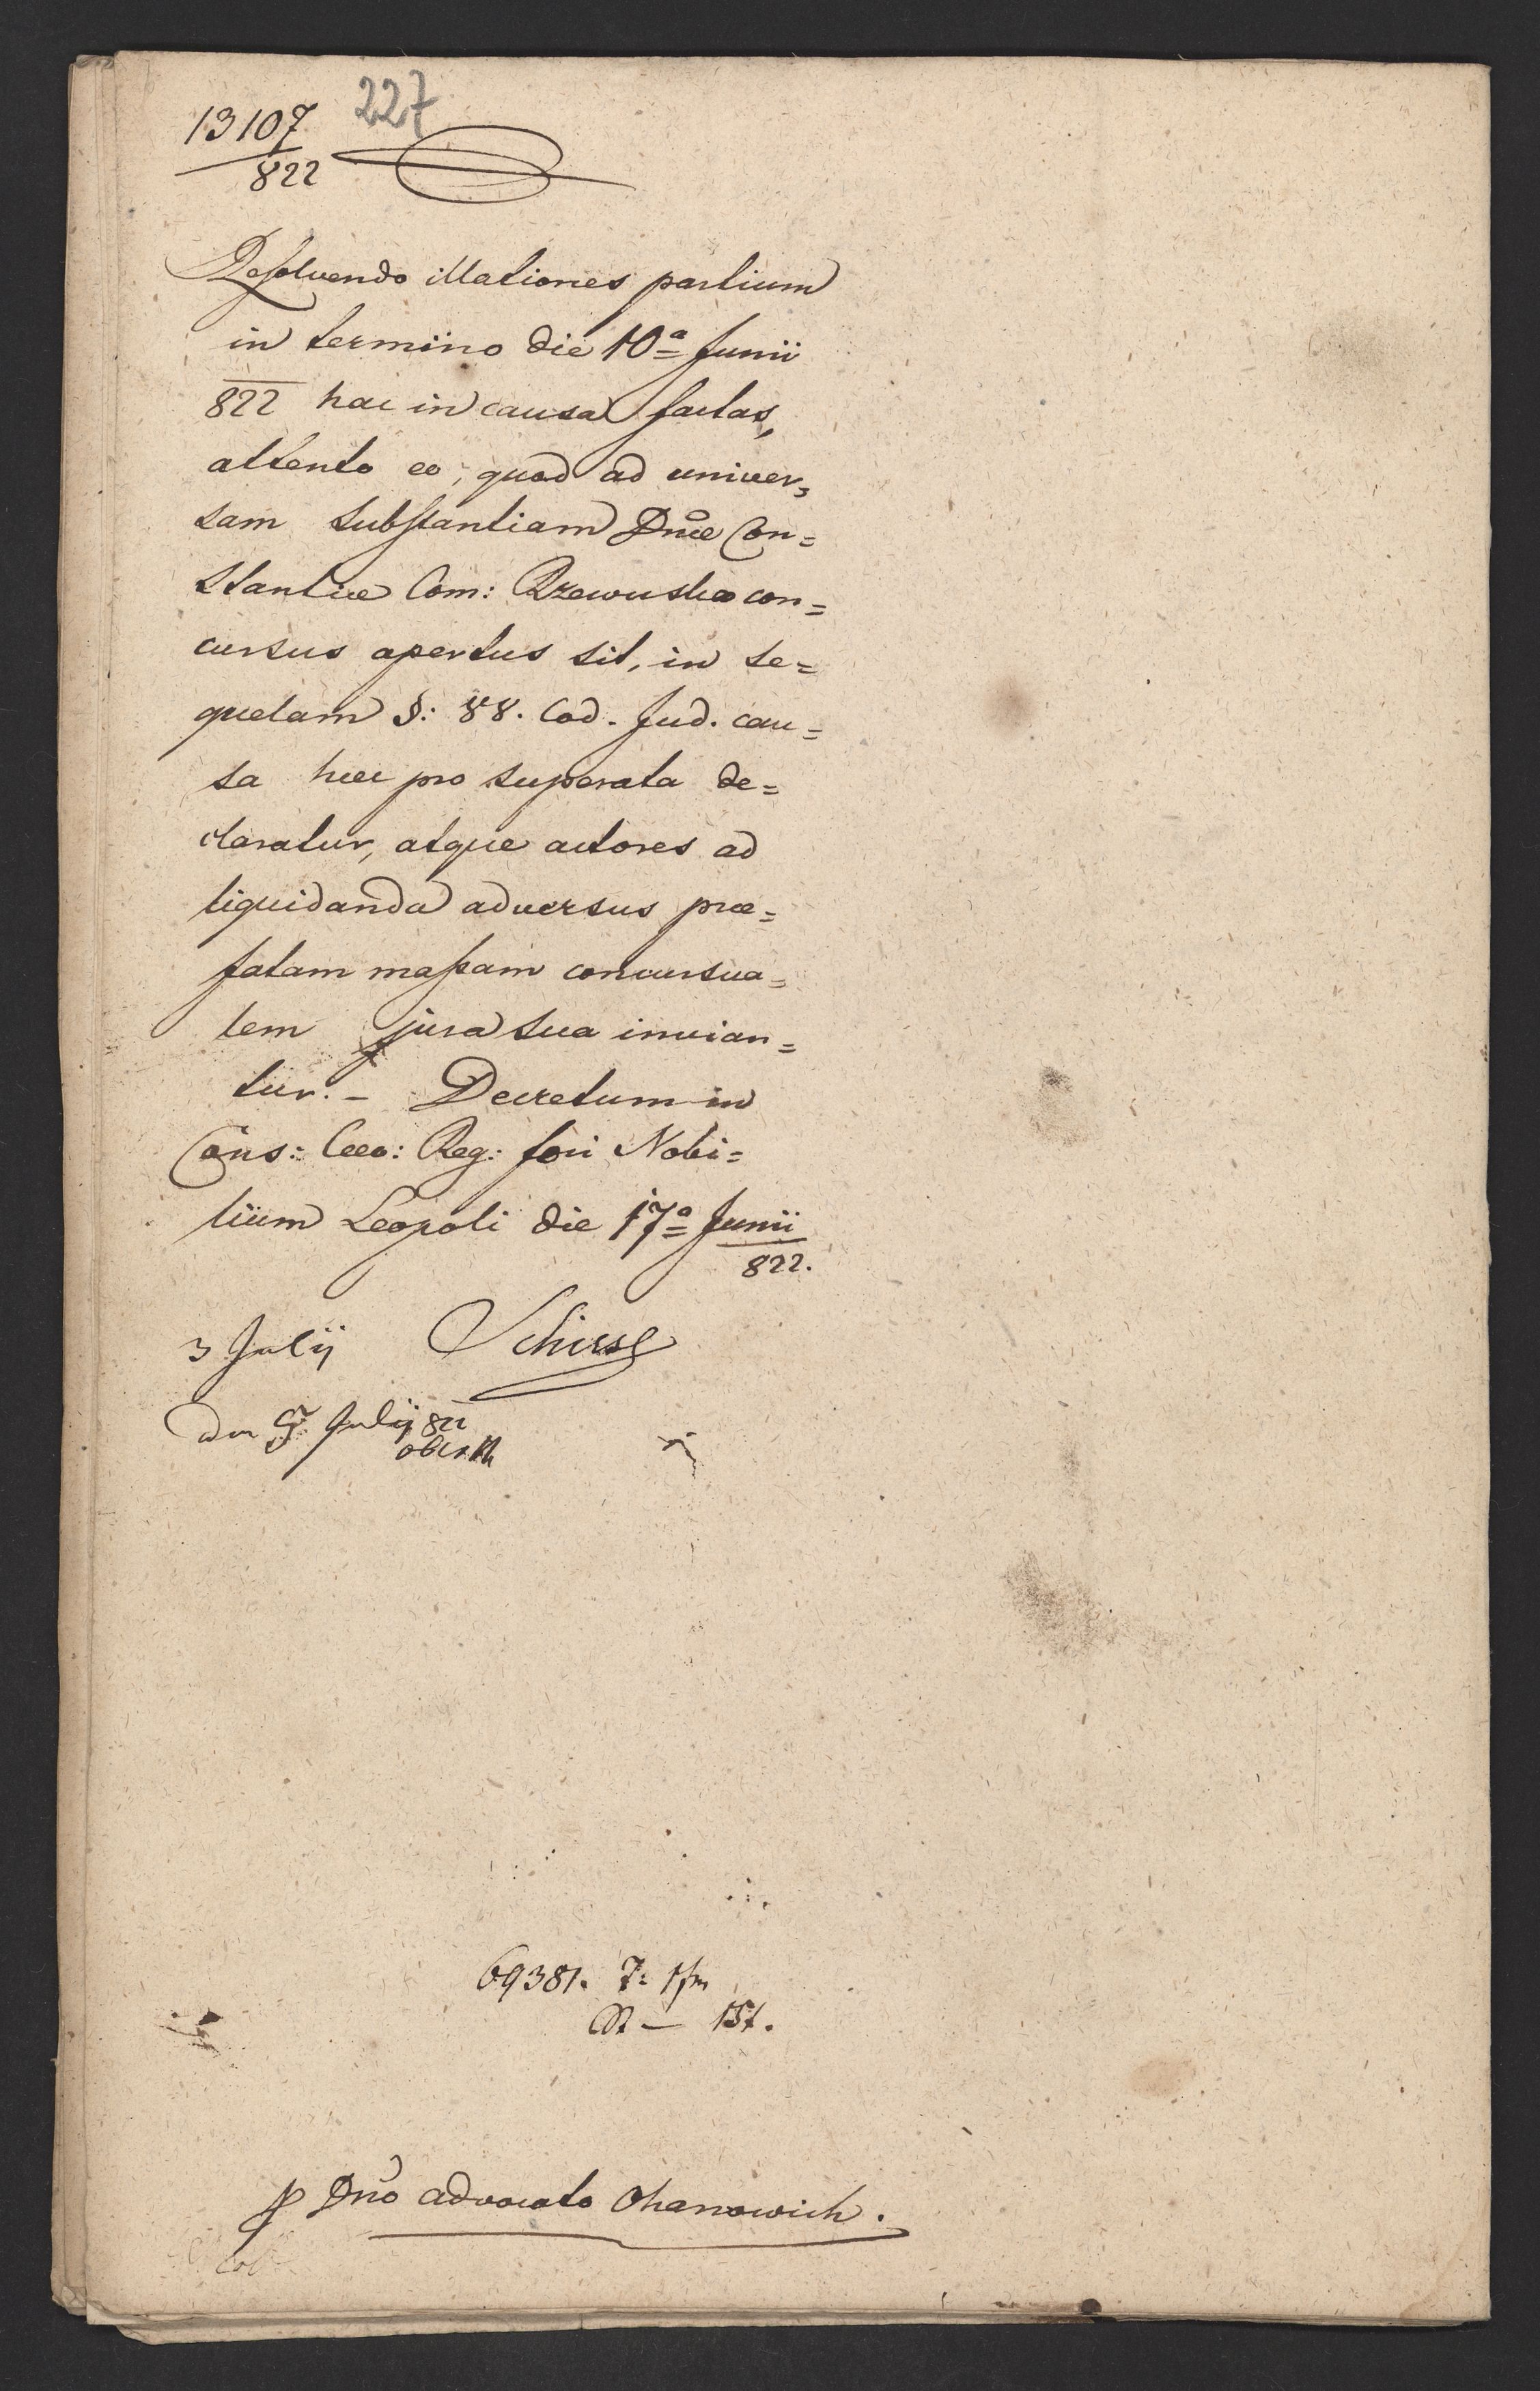 13107
822
227
Resolvendo illationes partium
in termino die 10ª Junii
822 hac in causa factas,
attento eo, quod ad univer=
sam substantiam Dnæ Con=
stantiæ Com: Rzewuska con=
cursus apertus sit, in se=
quelam §: 88. Cod. Jud. cau=
sa hæc pro superata de=
claratur, atque actores ad
liquidanda adversus præ=
fatam massam concursua=
lem jura sua invian=
tur. – Decretum in
Cons: Cæo: Reg: fori Nobi=
lium Leopoli die 17ª Junii
822.
3 Julij
Julij 822
69381.
– 15x.
p Dno advocato Ohanowich.